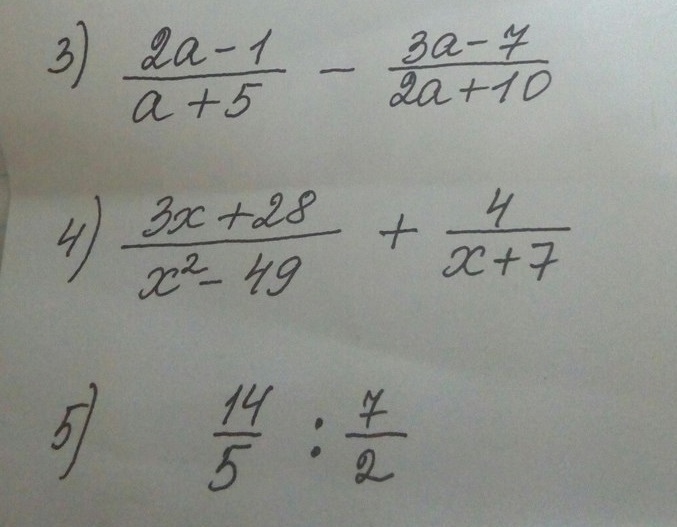 3) (2a-1)/(a+5) - (3a-7)/(2a+10)
4) (3x+28)/(x²-49) + 4/(x+7)
5) 14/5 : 7/2